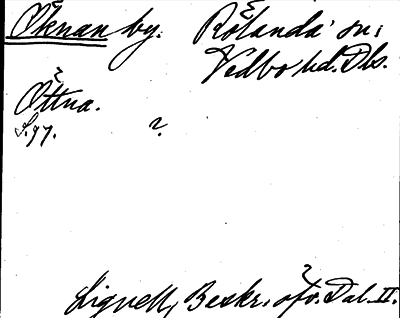 Öknan by. Rölanda sn;
Vedbo hd. Dls.
Öttna.
S. 97. ?
Lignell, Beskr. öfv. Dal. II.